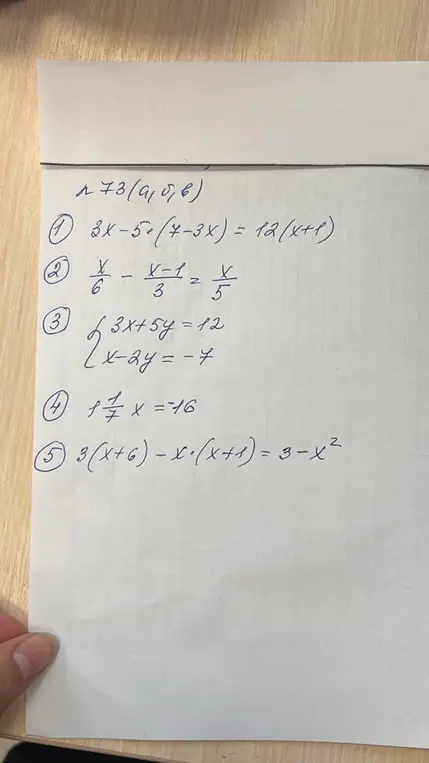 № 73 (а, б, в)
① 3x - 5 · (7 - 3x) = 12(x+1)
② x/6 - x-1/3 = x/5
③ { 3x + 5y = 12
x - 2y = -7
④ 1 1/7 x = -16
⑤ 3(x+6) - x · (x+1) = 3 - x²